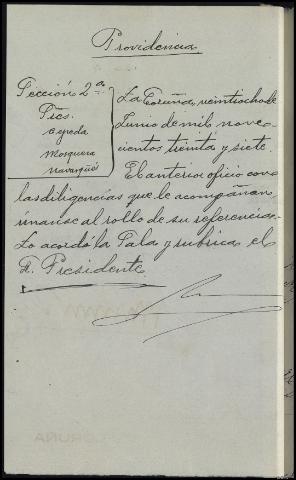 Providencia
Sección 2ª
Sres.
Cereda
Mosquera
Navarro
La Coruña, veintiocho de
Junio de mil nove-
cientos treinta y siete.
El anterior oficio con
las diligencias que le acompañan
unanse al rollo de su referencia.
Lo acordó la Sala y rubrica el
Sr. Presidente.
CORUÑA